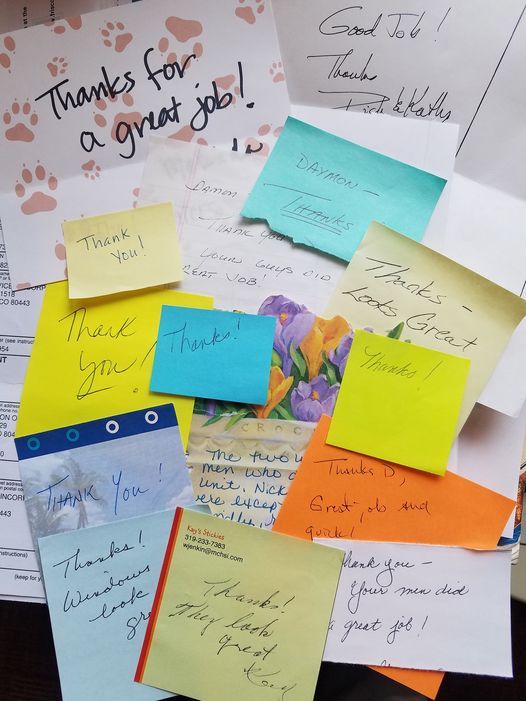 Thanks for
a great job!
Good Job!
Thanks
Dick & Kathy
DAYMON –
THANKS
DAMON –
THANK YOU
YOUR GUYS DID
GREAT JOB!
Thank
You!
Thanks –
Looks Great
Thank
you!
Thanks!
Thanks!
CROC
The two
men who
unit, Nick
were excep
THANK YOU!
Thanks D,
Great job and
quick!
Thanks!
Windows
look
gr
Kay's Stickies
319-233-7383
wjenkin@mchsi.com
Thanks!
They look
great
Thank you –
Your men did
a great job!
CO 80443
(see instructions)
954
INCORP
instructions)
(keep for y